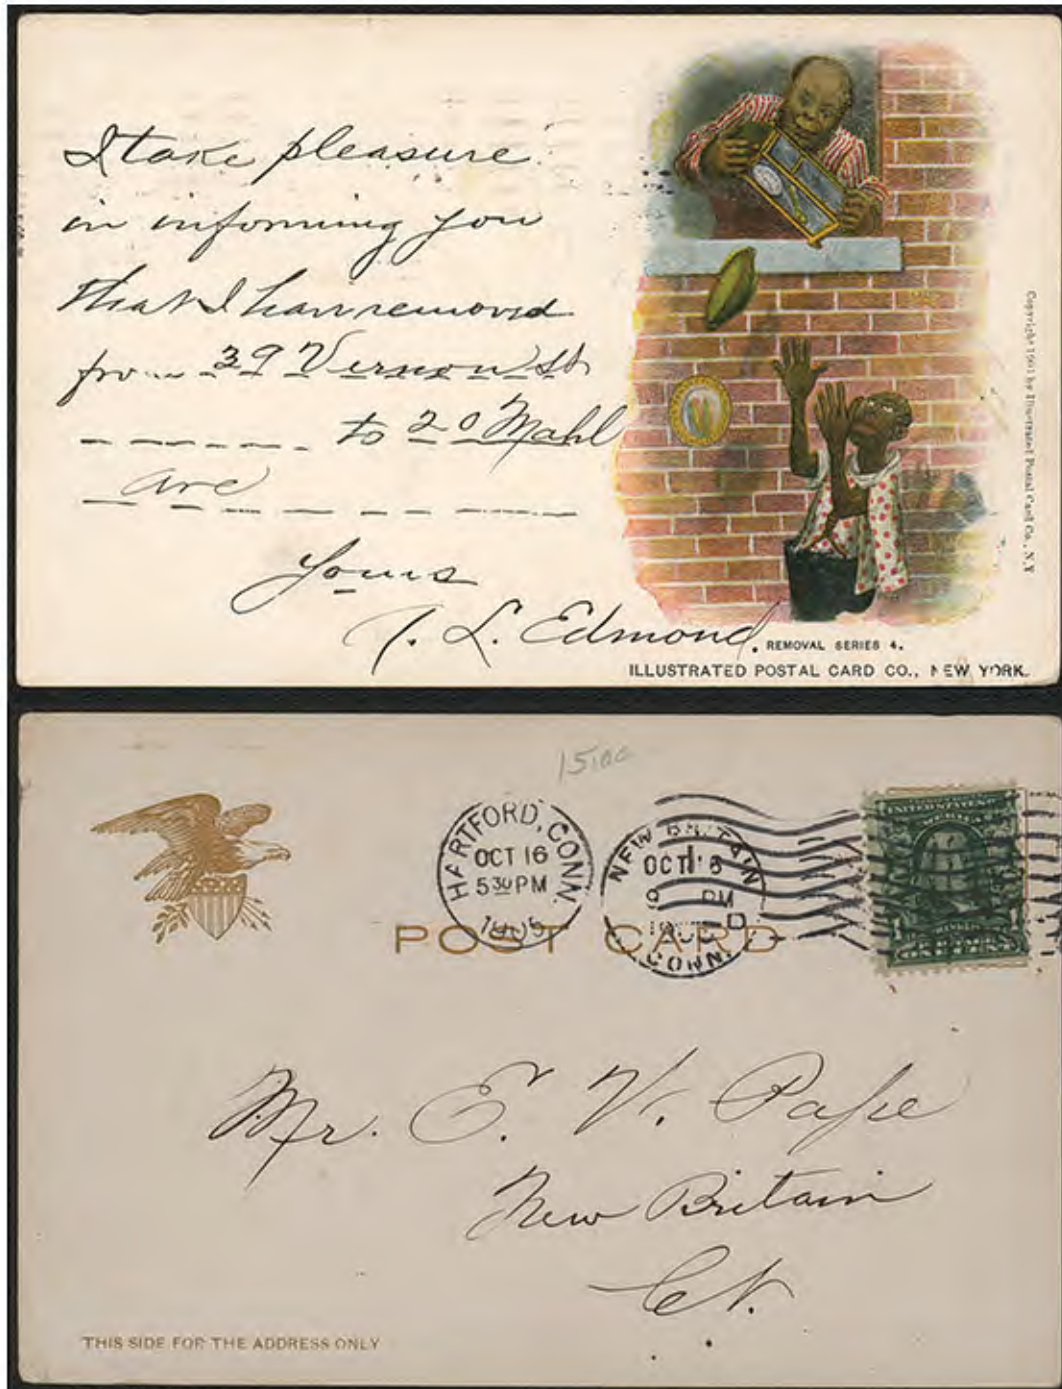 I take pleasure
in informing you
that I have removed
from 39 Vernon St
to 20 Mahl
ave
Yours
L. Edmond.
REMOVAL SERIES 4.
ILLUSTRATED POSTAL CARD CO., NEW YORK.
Copyright 1901 by Illustrated Postal Card Co., N.Y
15.00
HARTFORD, CONN.
OCT 16
5 30 PM
1905
NEW BRITAIN
OCT 16
9 PM
D
CONN.
UNITED STATES
POST CARD
Mr. E. W. Pape
New Britain
Ct.
THIS SIDE FOR THE ADDRESS ONLY